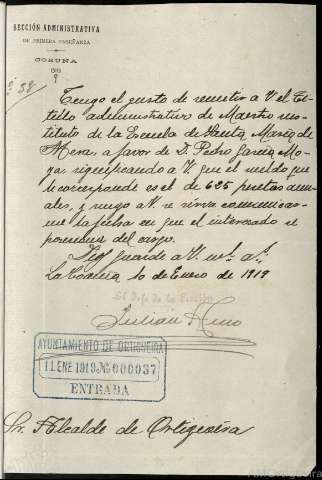 SECCIÓN ADMINISTRATIVA
DE PRIMERA ENSEÑANZA
CORUÑA
Tengo el gusto de remitir a V. el Tí-
tulo administrativo de Maestro sus-
tituto de la Escuela de Santa María de
Mera, a favor de D. Pedro García Mo-
ya: significando a V. que el sueldo que
le corresponde es el de 625 pesetas anua-
les, y ruego a V. se sirva comunicar-
me la fecha en que el interesado se
posesione del cargo.
Dios guarde a V. ms. as.
La Coruña 10 de Enero de 1919
El Jefe de la Sección
Julián
AYUNTAMIENTO DE ORTIGUEIRA
11 ENE 1919 No 000037
ENTRADA
Sr. Alcalde de Ortigueira